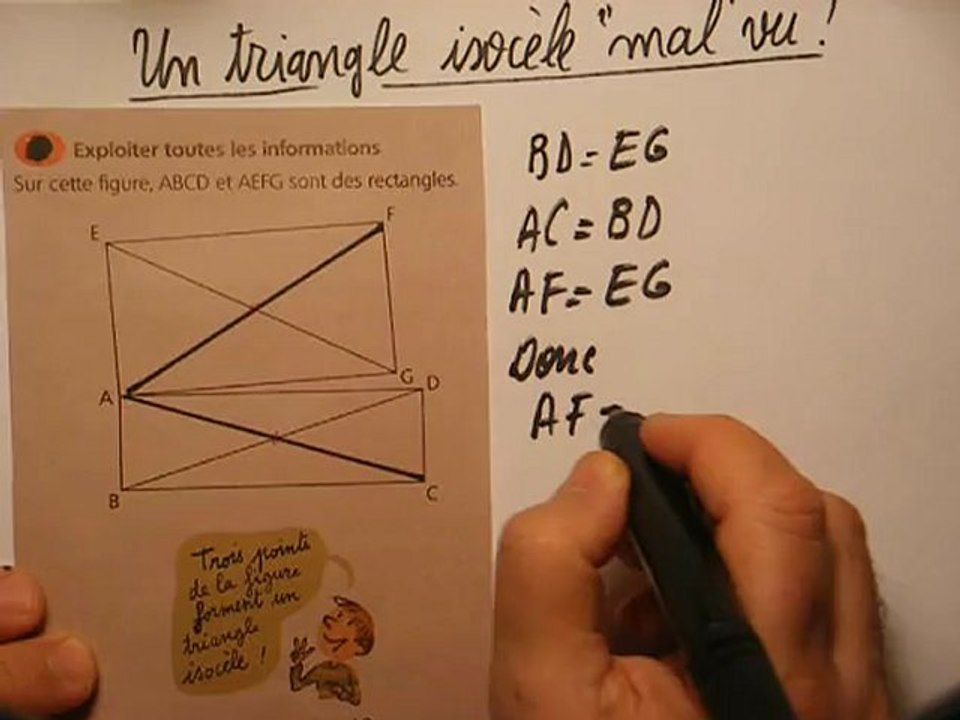 Un triangle isocèle "mal" vu !
Exploiter toutes les informations
Sur cette figure, ABCD et AEFG sont des rectangles.
E
F
A
G
D
B
C
Trois points
de la figure
forment un
triangle
isocèle !
BD = EG
AC = BD
AF = EG
Donc
AF =